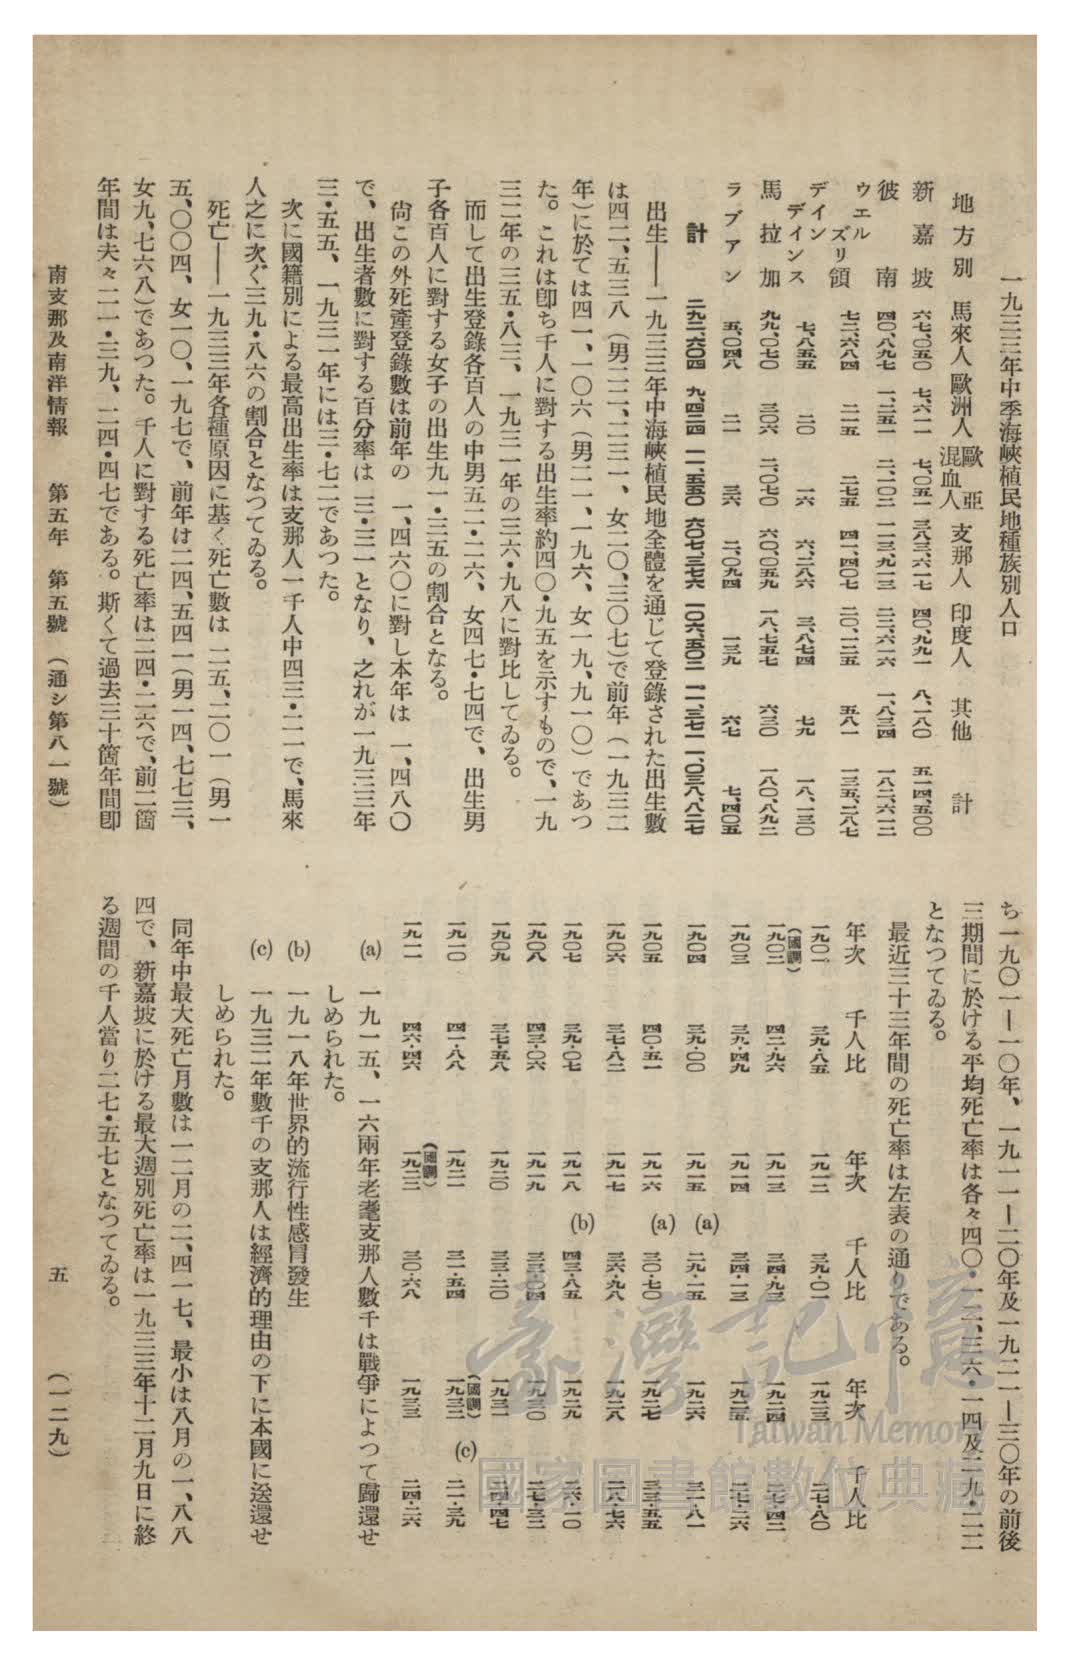 一九三三年中季海峽植民地種族別人口
地方別 馬來人 歐洲人 歐亞混血人 支那人 印度人 其他 計
新嘉坡 六七、〇五〇 七、六二一 七、〇五一 三八三、六一七 四〇、九九一 八、一八〇 五一四、五〇〇
彼南 四〇、八九七 一、二五一 二、一〇二 一一三、九一三 二三、六一六 一、八三四 一八二、六一二
ウエルズリ領 七二、六八四 二二五 二七五 四一、四〇七 二〇、一二五 五八一 一三五、二八七
デインデインス 七、八五五 二〇 一六 六、二八六 三、八七四 七九 一八、一三〇
馬拉加 九九、〇七〇 三〇六 二、〇七〇 六〇、〇五九 一八、七五七 六三〇 一八〇、八九二
ラブアン 五、〇四八 二一 三六 二、〇九四 一三九 六七 七、四〇五
計 二九二、六〇四 九、四二四 一一、五五〇 六〇七、三七六 一〇六、五〇二 一一、三七一 一、〇三八、八二七
出生――一九三三年中海峽植民地全體を通じて登錄された出生數
は四二、五三八（男二二、二三一、女二〇、三〇七）で前年（一九三二
年）に於ては四一、一〇六（男二一、一九六、女一九、九一〇）であつ
た。これは卽ち千人に對する出生率約四〇・九五を示すもので、一九
三二年の三五・八三、一九三一年の三六・九八に對比してゐる。
而して出生登錄各百人の中男五二・二六、女四七・七四で、出生男
子各百人に對する女子の出生九一・三五の割合となる。
尙この外死產登錄數は前年の 一、四六〇に對し本年は 一、四八〇
で、出生者數に對する百分率は 三・三一となり、之れが一九三三年
三・五五、一九三一年には三・七二であつた。
次に國籍別による最高出生率は支那人一千人中四三・二一で、馬來
人之に次ぐ三九・八六の割合となつてゐる。
死亡――一九三三年各種原因に基く死亡數は 二五、二〇一（男一
五、〇〇四、女一〇、一九七で、前年は二四、五四一（男一四、七七三、
女九、七六八）であつた。千人に對する死亡率は二四・二六で、前二箇
年間は夫々二一・三九、二四・四七である。斯くて過去三十箇年間卽
ち一九〇一―一〇年、一九一一―二〇年及一九二一―三〇年の前後
三期間に於ける平均死亡率は各々四〇・一二、三六・一四及二九・二二
となつてゐる。
最近三十三年間の死亡率は左表の通りである。
年次 千人比 年次 千人比 年次 千人比
一九〇一 三九・八五 一九一二 三九・〇一 一九二三 二七・八〇
（國調）
一九〇二 四二・九六 一九一三 三四・九三 一九二四 二七・四二
一九〇三 三九・四九 一九一四 三四・一三 一九二五 二七・二六
一九〇四 三九・〇〇 一九一五 (a) 二九・一五 一九二六 三一・八一
一九〇五 四〇・五一 一九一六 (a) 三〇・七〇 一九二七 三三・五五
一九〇六 三七・八二 一九一七 三六・九八 一九二八 二八・七六
一九〇七 三九・〇七 一九一八 (b) 四三・八五 一九二九 二六・一〇
一九〇八 四三・〇六 一九一九 三三・〇四 一九三〇 二七・三二
一九〇九 三七・五八 一九二〇 三三・二〇 一九三一 二四・四七
（國調）
一九一〇 四一・八八 一九二一 三一・五四 一九三二 (c) 二一・三九
（國調）
一九一一 四六・四六 一九二二 三〇・六八 一九三三 二四・二六
(a) 一九一五、一六兩年老耄支那人數千は戰爭によつて歸還せ
しめられた。
(b) 一九一八年世界的流行性感冒發生
(c) 一九三二年數千の支那人は經濟的理由の下に本國に送還せ
しめられた。
同年中最大死亡月數は一二月の二、四一七、最小は八月の一、八八
四で、新嘉坡に於ける最大週別死亡率は一九三三年十二月九日に終
る週間の千人當り二七・五七となつてゐる。
南支那及南洋情報 第五年 第五號 （通シ第八一號） 五 （一二九）
臺灣記憶
Taiwan Memory
國家圖書館數位典藏